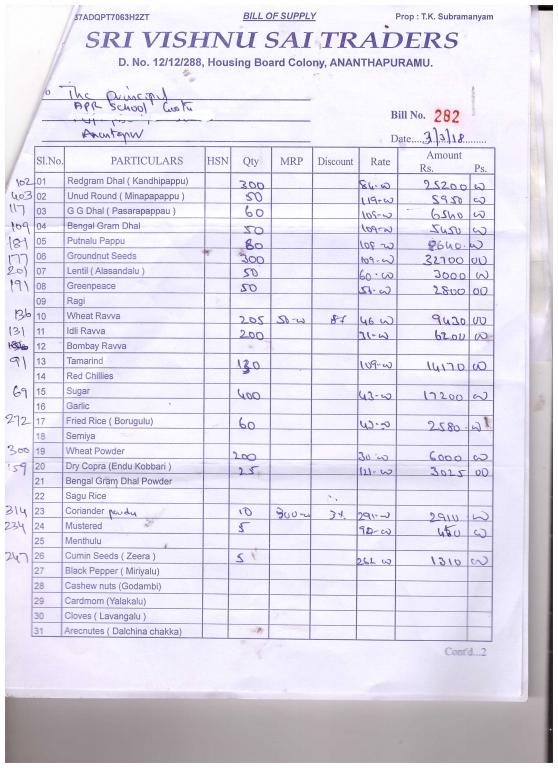 37ADQPT7063H2ZT BILL OF SUPPLY Prop : T.K. Subramanyam
SRI VISHNU SAI TRADERS
D. No. 12/12/288, Housing Board Colony, ANANTHAPURAMU.
The Principal
APR School
Anantapur
Bill No. 282
Date....3/3/18.........
Sl.No. PARTICULARS HSN Qty MRP Discount Rate Amount
Rs. Ps.
102 01 Redgram Dhal (Kandhipappu) 300 84-00 25200 00
403 02 Unud Round (Minapapappu ) 50 119-00 5950 00
117 03 G G Dhal ( Pasarapappau ) 60 109-00 6540 00
109 04 Bengal Gram Dhal 50 109-00 5450 00
181 05 Putnalu Pappu 80 108-00 8640-00
177 06 Groundnut Seeds 300 109-00 32700 00
201 07 Lentil ( Alasandalu ) 50 60-00 3000 00
191 08 Greenpeace 50 56-00 2800 00
09 Ragi
136 10 Wheat Ravva 205 50-00 8% 46 00 9430 00
131 11 Idli Ravva 200 31-00 6200 00
12 Bombay Ravva
91 13 Tamarind 130 109-00 14170 00
14 Red Chillies
69 15 Sugar 400 43-00 17200 00
16 Garlic
272 17 Fried Rice ( Borugulu) 60 43-00 2580-00
18 Semiya
300 19 Wheat Powder 200 30-00 6000 00
159 20 Dry Copra (Endu Kobbari ) 25 121-00 3025 00
21 Bengal Gram Dhal Powder
22 Sagu Rice
314 23 Coriander 10 300-00 3% 291-00 2910 00
234 24 Mustered 5 90-00 450 00
25 Menthulu
247 26 Cumin Seeds ( Zeera ) 5 262-00 1310 00
27 Black Pepper ( Miriyalu)
28 Cashew nuts (Godambi)
29 Cardmom (Yalakalu)
30 Cloves ( Lavangalu )
31 Arecnutes ( Dalchina chakka)
Cont'd...2